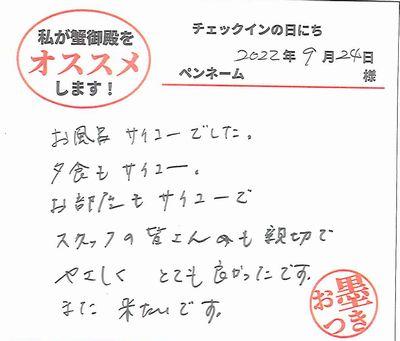 私が蟹御殿を
オススメ
します！
チェックインの日にち
2022年9月24日
ペンネーム 様
お風呂 サイコーでした。
夕食もサイコー。
お部屋もサイコーで
スタッフの皆さんも親切で
やさしく とても良かったです。
また 来たいです。
お墨つき